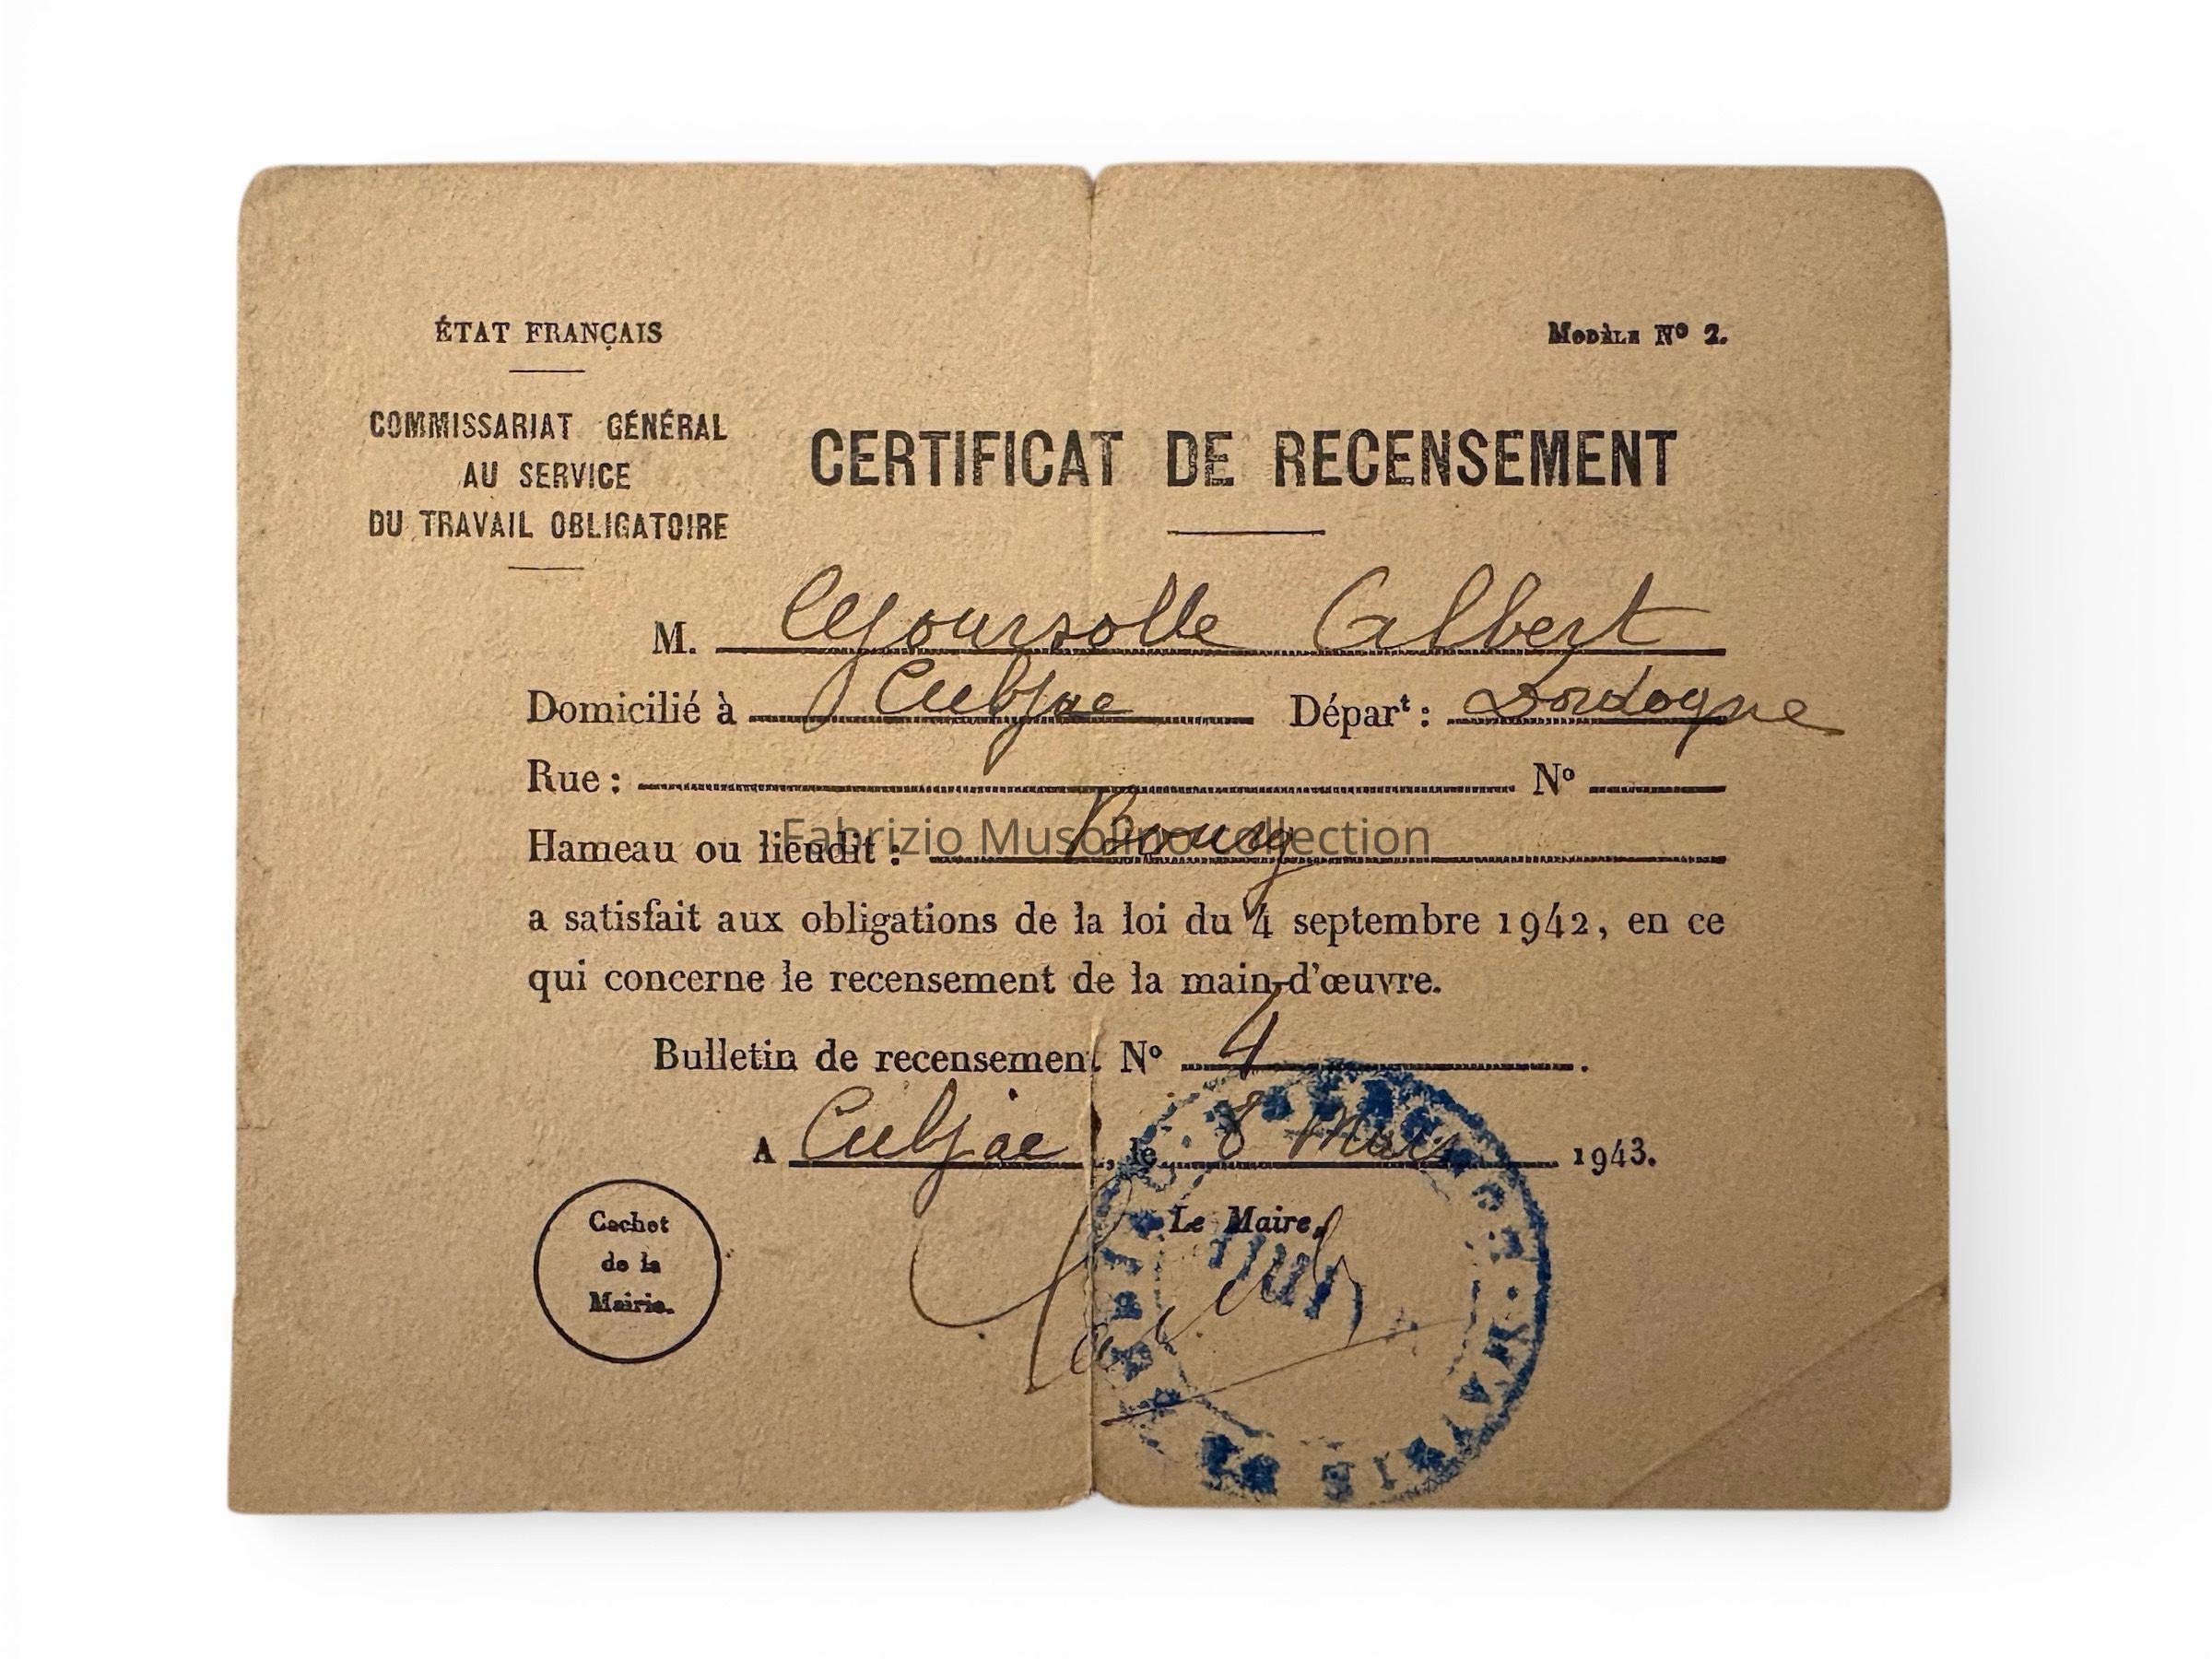 ÉTAT FRANÇAIS
MODÈLE Nº 2.
COMMISSARIAT GÉNÉRAL
AU SERVICE
DU TRAVAIL OBLIGATOIRE
CERTIFICAT DE RECENSEMENT
M. Albert
Domicilié à Cubjac Départ: Dordogne
Rue : Nº
Hameau ou lieudit : Bourg
Fabrizio Musolino collection
a satisfait aux obligations de la loi du 4 septembre 1942, en ce
qui concerne le recensement de la main-d'œuvre.
Bulletin de recensement Nº 4.
A Cubjac, le 8 Mars 1943.
Le Maire,
Cachet
de la
Mairie.